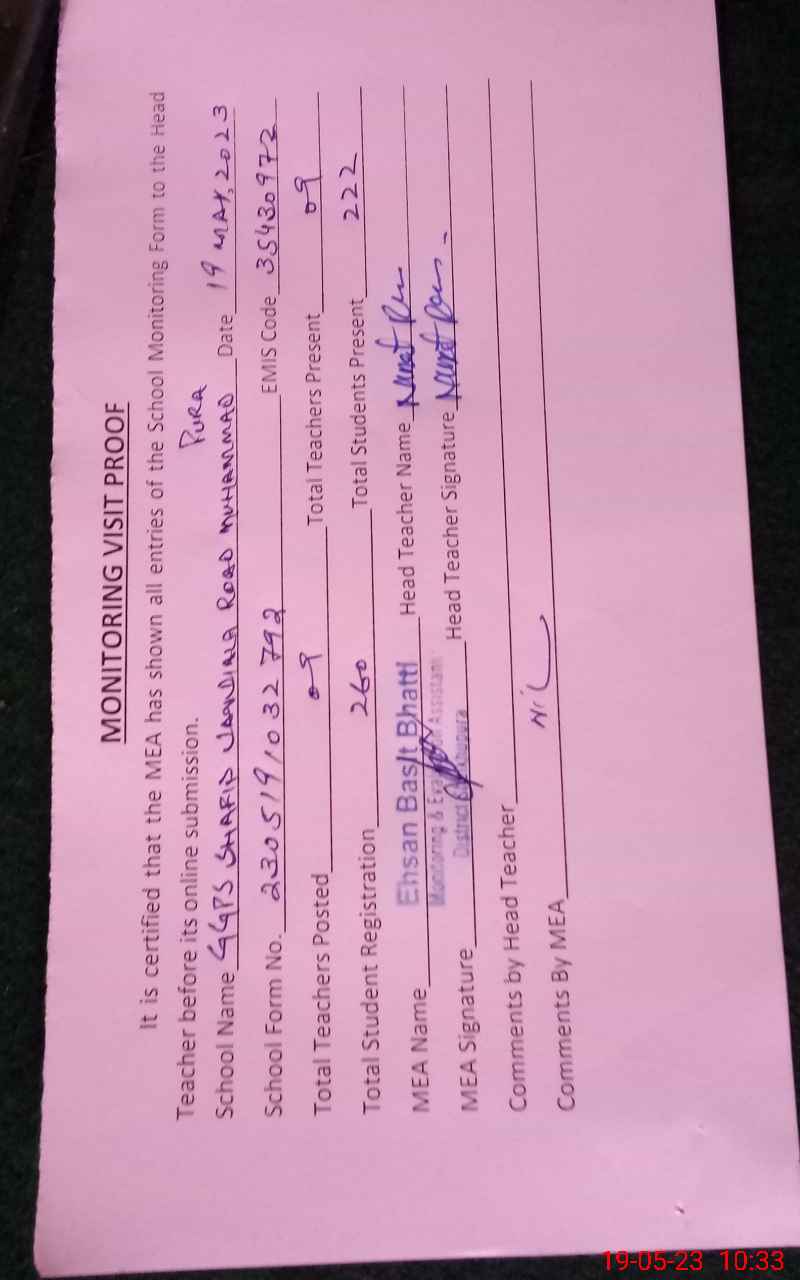 MONITORING VISIT PROOF
It is certified that the MEA has shown all entries of the School Monitoring Form to the Head
Teacher before its online submission.
PURA
School Name GGPS SHARIF JANDIALA ROAD MUHAMMAD Date 19 MAY, 2023
School Form No. 230519/032792 EMIS Code 35430972
Total Teachers Posted 09 Total Teachers Present 09
Total Student Registration 260 Total Students Present 222
MEA Name Ehsan Basit Bhatti Head Teacher Name
Monitoring & Evaluation Assistant
District Sheikhupura
MEA Signature Head Teacher Signature
Comments by Head Teacher
Comments By MEA Nil
19-05-23 10:33